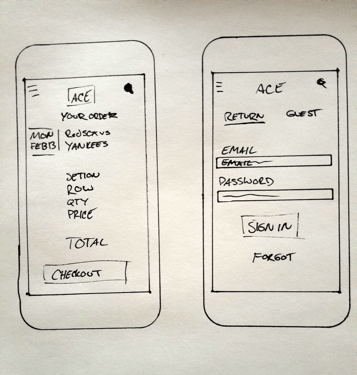 ACE
YOUR ORDER
MON
FEB 13
REDSOX VS
YANKEES
SETION
ROW
QTY
PRICE
TOTAL
CHECKOUT
ACE
RETURN GUEST
EMAIL
EMAIL
PASSWORD
SIGN IN
FORGOT